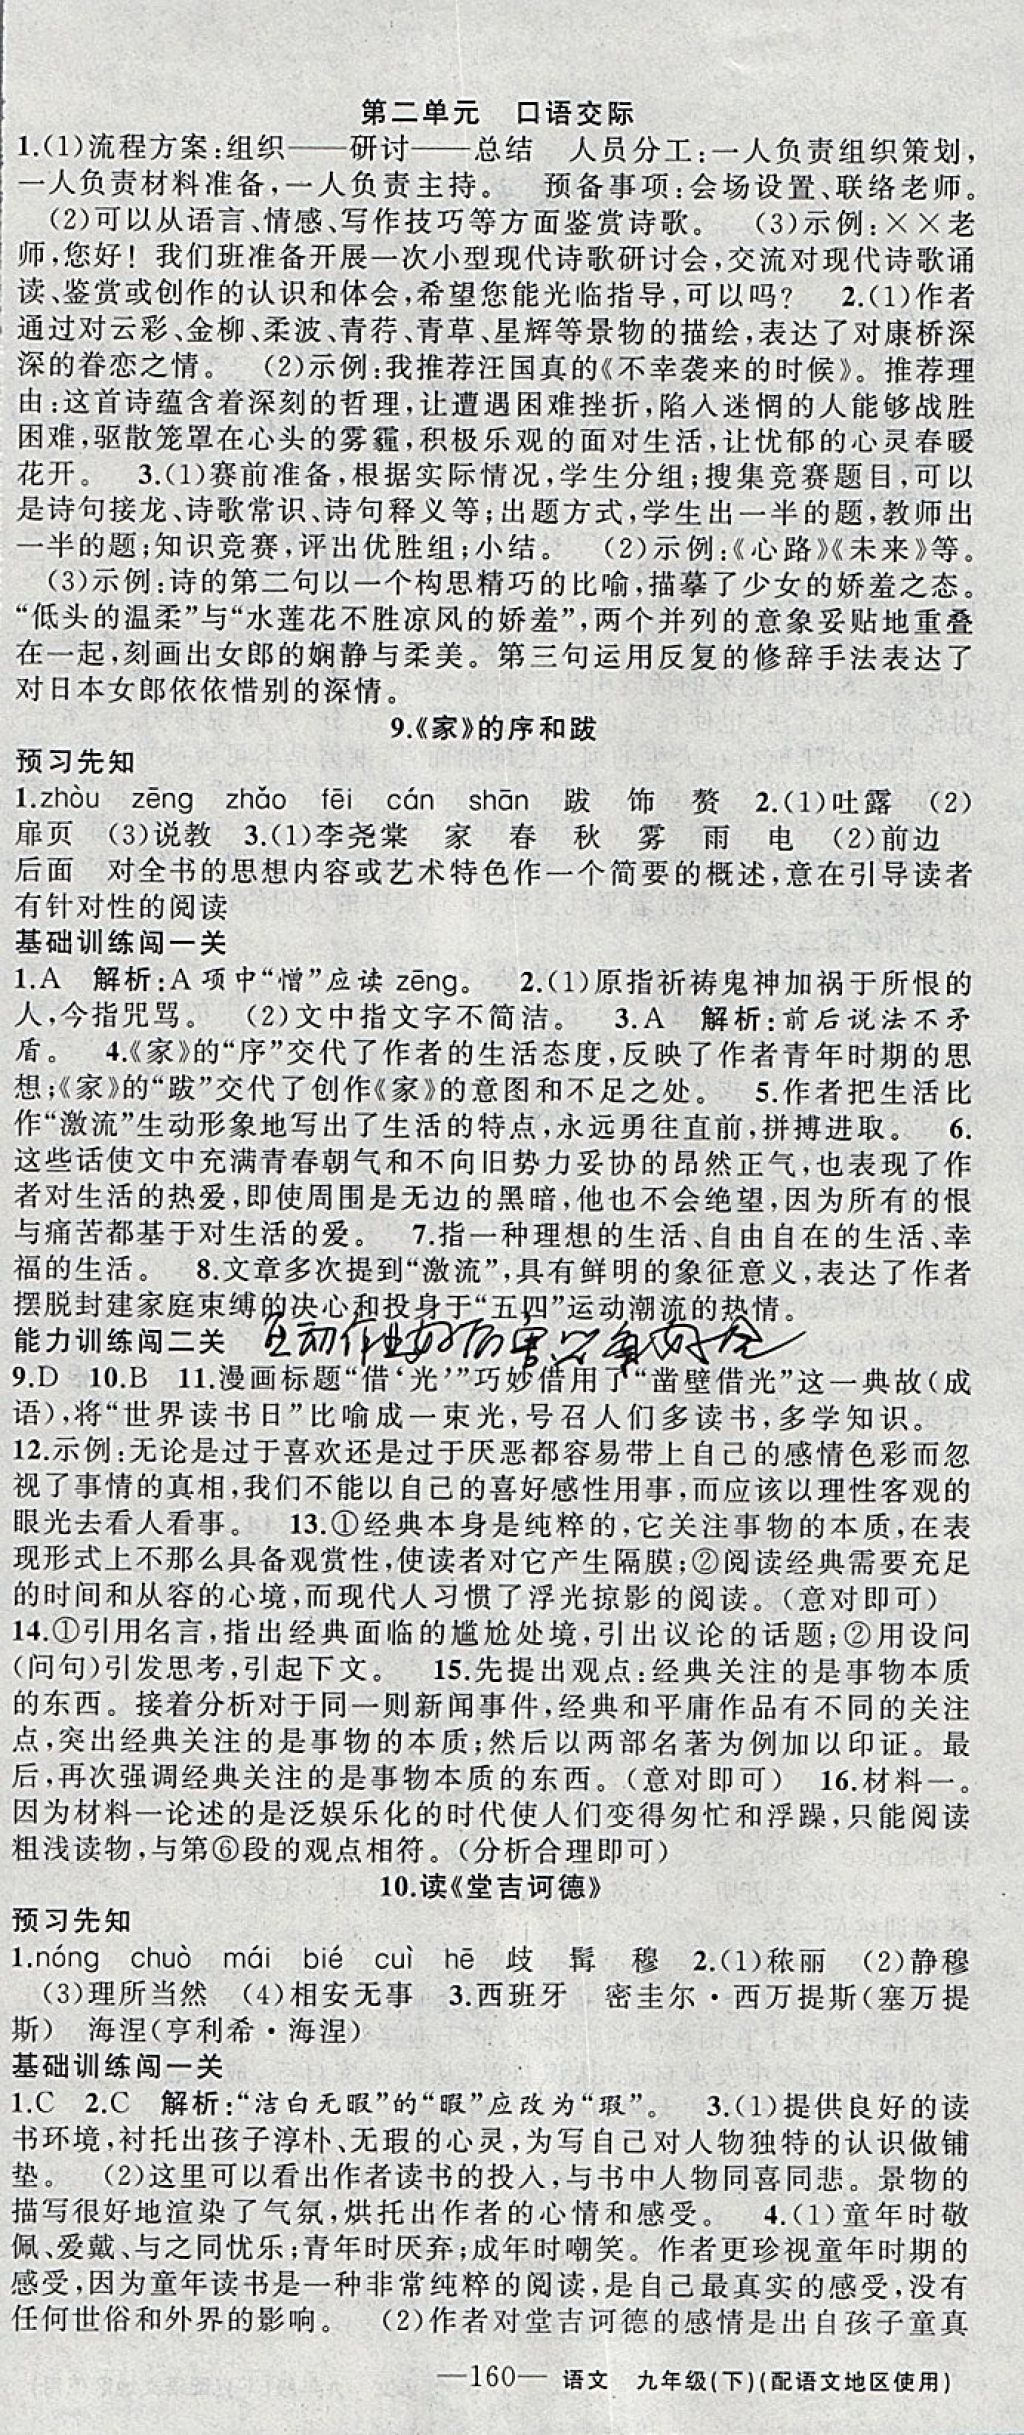 第二单元　口语交际
1.(1)流程方案:组织——研讨——总结　人员分工:一人负责组织策划,
一人负责材料准备,一人负责主持。　预备事项:会场设置、联络老师。
(2)可以从语言、情感、写作技巧等方面鉴赏诗歌。　(3)示例:××老
师,您好！我们班准备开展一次小型现代诗歌研讨会,交流对现代诗歌诵
读、鉴赏或创作的认识和体会,希望您能光临指导,可以吗?　2.(1)作者
通过对云彩、金柳、柔波、青荇、青草、星辉等景物的描绘,表达了对康桥深
深的眷恋之情。　(2)示例:我推荐汪国真的《不幸袭来的时候》。推荐理
由:这首诗蕴含着深刻的哲理,让遭遇困难挫折,陷入迷惘的人能够战胜
困难,驱散笼罩在心头的雾霾,积极乐观的面对生活,让忧郁的心灵春暖
花开。　3.(1)赛前准备,根据实际情况,学生分组;搜集竞赛题目,可以
是诗句接龙、诗歌常识、诗句释义等;出题方式,学生出一半的题,教师出
一半的题;知识竞赛,评出优胜组;小结。　(2)示例:《心路》《未来》等。
(3)示例:诗的第二句以一个构思精巧的比喻,描摹了少女的娇羞之态。
“低头的温柔”与“水莲花不胜凉风的娇羞”,两个并列的意象妥贴地重叠
在一起,刻画出女郎的娴静与柔美。第三句运用反复的修辞手法表达了
对日本女郎依依惜别的深情。
9.《家》的序和跋
预习先知
1.zhòu　zēng　zhǎo　fēi　cán　shān　跋　饰　赘　2.(1)吐露　(2)
扉页　(3)说教　3.(1)李尧棠　家　春　秋　雾　雨　电　(2)前边
后面　对全书的思想内容或艺术特色作一个简要的概述,意在引导读者
有针对性的阅读
基础训练闯一关
1.A　解析:A项中“憎”应读zēng。　2.(1)原指祈祷鬼神加祸于所恨的
人,今指咒骂。　(2)文中指文字不简洁。　3.A　解析:前后说法不矛
盾。　4.《家》的“序”交代了作者的生活态度,反映了作者青年时期的思
想;《家》的“跋”交代了创作《家》的意图和不足之处。　5.作者把生活比
作“激流”生动形象地写出了生活的特点,永远勇往直前,拼搏进取。　6.
这些话使文中充满青春朝气和不向旧势力妥协的昂然正气,也表现了作
者对生活的热爱,即使周围是无边的黑暗,他也不会绝望,因为所有的恨
与痛苦都基于对生活的爱。　7.指一种理想的生活、自由自在的生活、幸
福的生活。　8.文章多次提到“激流”,具有鲜明的象征意义,表达了作者
摆脱封建家庭束缚的决心和投身于“五四”运动潮流的热情。
能力训练闯二关
9.D　10.B　11.漫画标题“借‘光’”巧妙借用了“凿壁借光”这一典故(成
语),将“世界读书日”比喻成一束光,号召人们多读书,多学知识。
12.示例:无论是过于喜欢还是过于厌恶都容易带上自己的感情色彩而忽
视了事情的真相,我们不能以自己的喜好感性用事,而应该以理性客观的
眼光去看人看事。　13.①经典本身是纯粹的,它关注事物的本质,在表
现形式上不那么具备观赏性,使读者对它产生隔膜;②阅读经典需要充足
的时间和从容的心境,而现代人习惯了浮光掠影的阅读。(意对即可)
14.①引用名言,指出经典面临的尴尬处境,引出议论的话题;②用设问
(问句)引发思考,引起下文。　15.先提出观点:经典关注的是事物本质
的东西。接着分析对于同一则新闻事件,经典和平庸作品有不同的关注
点,突出经典关注的是事物的本质;然后以两部名著为例加以印证。最
后,再次强调经典关注的是事物本质的东西。(意对即可)　16.材料一。
因为材料一论述的是泛娱乐化的时代使人们变得匆忙和浮躁,只能阅读
粗浅读物,与第⑥段的观点相符。(分析合理即可)
10.读《堂吉诃德》
预习先知
1.nóng　chuò　mái　bié　cuì　hē　歧　髯　穆　2.(1)秾丽　(2)静穆
(3)理所当然　(4)相安无事　3.西班牙　密圭尔·西万提斯(塞万提
斯)　海涅(亨利希·海涅)
基础训练闯一关
1.C　2.C　解析:“洁白无暇”的“暇”应改为“瑕”。　3.(1)提供良好的读
书环境,衬托出孩子淳朴、无瑕的心灵,为写自己对人物独特的认识做铺
垫。　(2)这里可以看出作者读书的投入,与书中人物同喜同悲。景物的
描写很好地渲染了气氛,烘托出作者的心情和感受。　4.(1)童年时敬
佩、爱戴、与之同忧乐;青年时厌弃;成年时嘲笑。作者更珍视童年时期的
感受,因为童年读书是一种非常纯粹的阅读,是自己最真实的感受,没有
任何世俗和外界的影响。　(2)作者对堂吉诃德的感情是出自孩子童真
—160—　语文　九年级(下)(配语文地区使用)